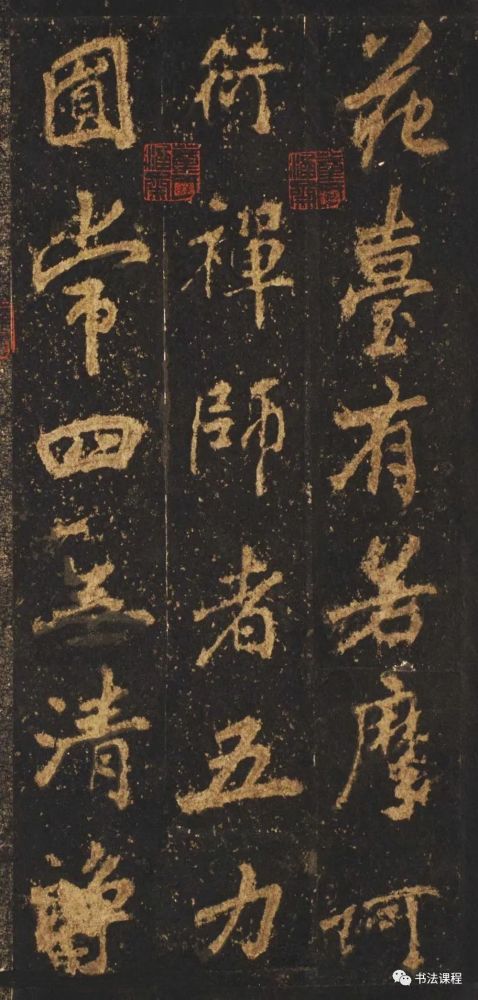 花臺有若摩訶
衍禪師者五力
圓常四無清
书法课程